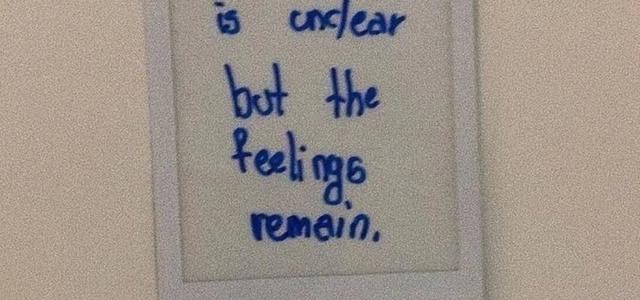 is unclear
but the
feelings
remain.